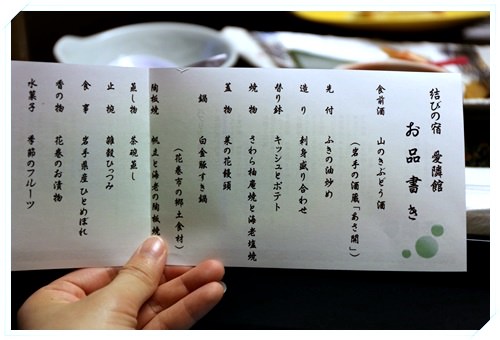 結びの宿 愛隣館
お品書き
食前酒 山のきぶどう酒
(岩手の酒蔵「あさ開」)
先付 ふきの油炒め
造り 刺身盛り合わせ
替り鉢 キッシュとポテト
焼物 さわら柚庵焼と海老塩焼
蓋物 菜の花饅頭
鍋 白金豚すき鍋
(花巻市の郷土食材)
陶板焼 帆立と海老の陶板焼
蒸し物 茶碗蒸し
止椀 雑穀ひっつみ
食事 岩手県産ひとめぼれ
香の物 花巻のお漬物
水菓子 季節のフルーツ